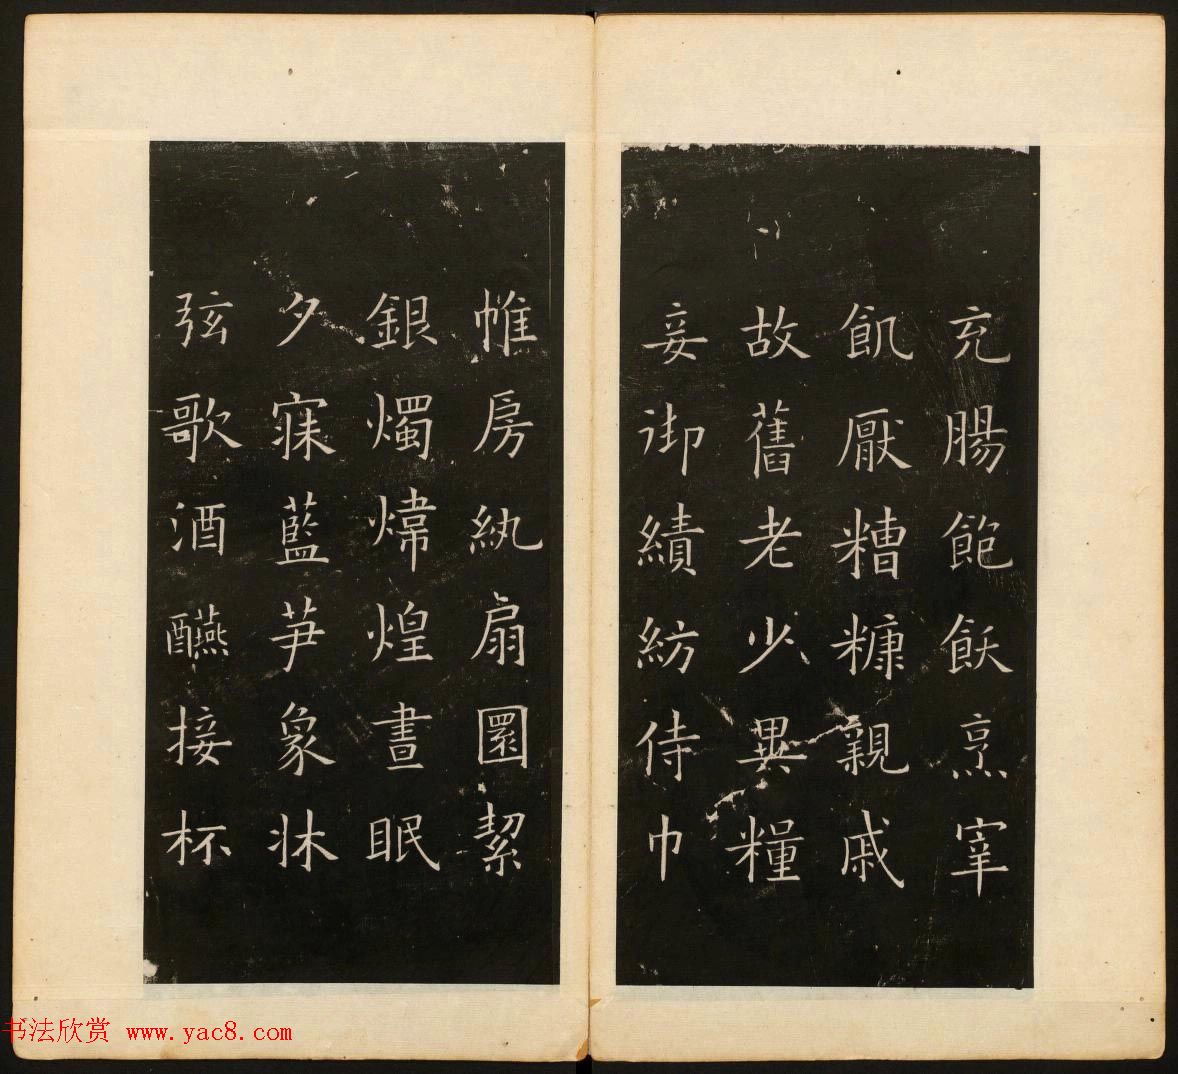 充腸飽飫烹宰
飢厭糟糠親戚
故舊老少異糧
妾御績紡侍巾
帷房紈扇圜絜
銀燭煒煌晝眠
夕寐藍笋象牀
弦歌酒醼接杯
书法欣赏 www.yac8.com